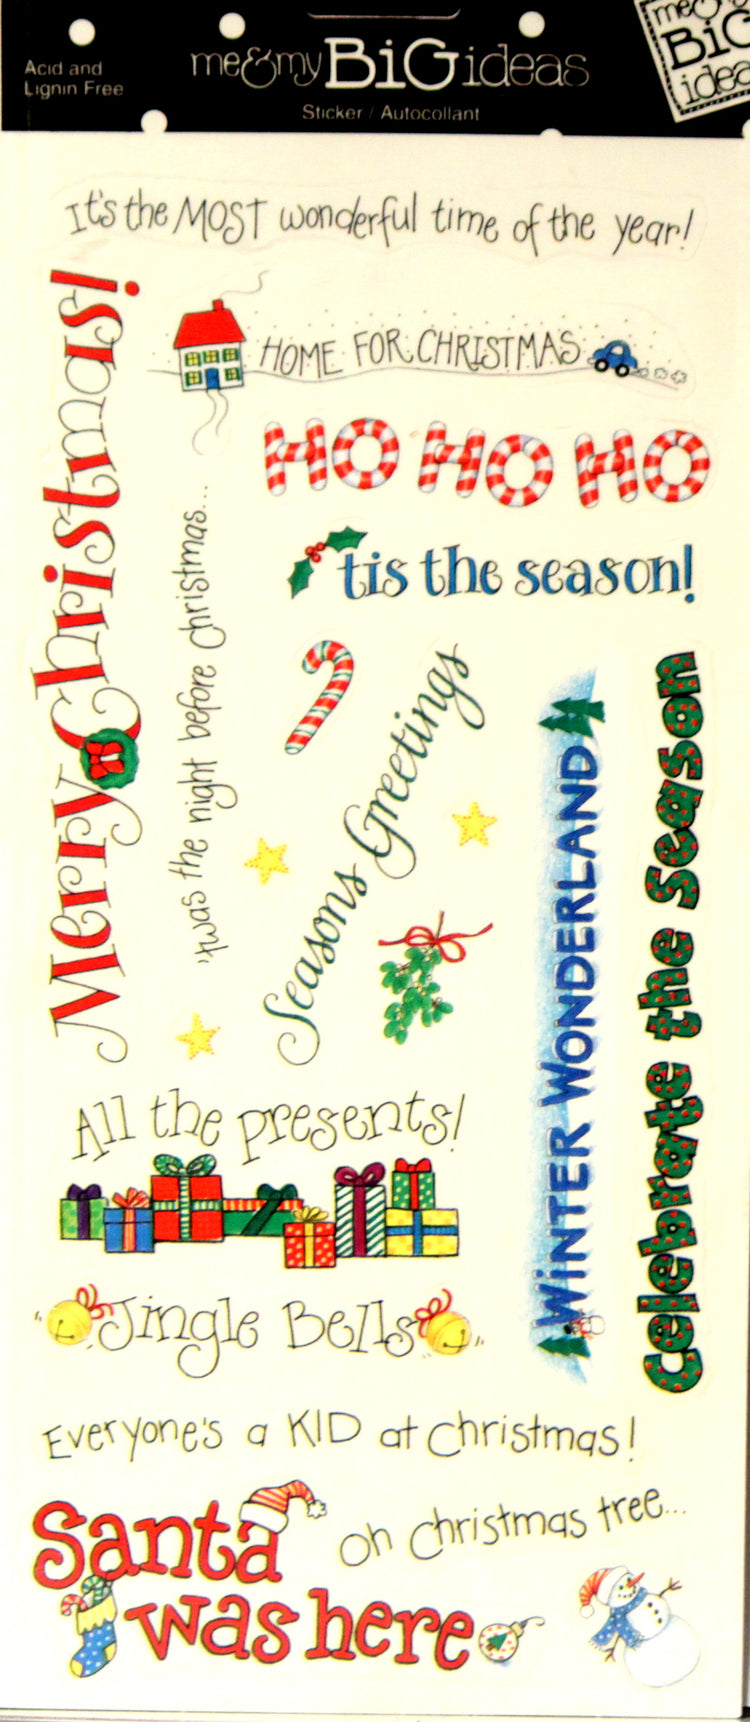 Acid and
Lignin Free
me&myBiGideas
Sticker / Autocollant
me&my
BiG
idea
It's the MOST wonderful time of the year!
Merry Christmas!
HOME FOR CHRISTMAS
HO HO HO
'twas the night before christmas...
tis the season!
Seasons Greetings
WiNTER WONDERLAND
Celebrate the Season
All the presents!
Jingle Bells
Everyone's a KID at christmas!
Santa
was here
oh christmas tree...